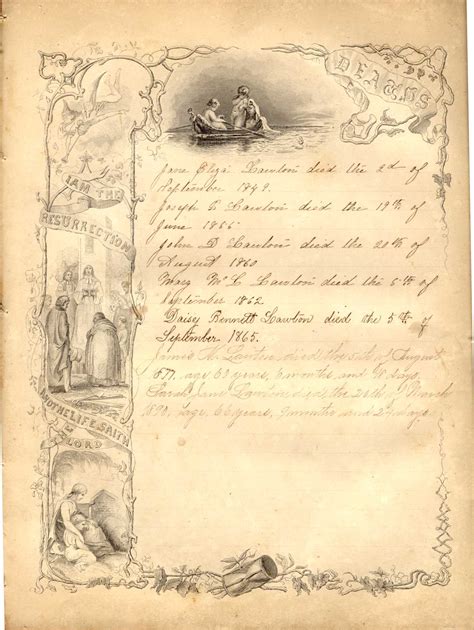 DEATHS
I AM THE
RESURRECTION
AND THE LIFE SAITH
THE LORD
Jane Eliza Lawton died the 2d of
September 1849.
Joseph E Lawton died the 19th of
June 1855
John D Lawton died the 20th of
August 1860
Mary Mc L Lawton died the 5th of
September 1862
Daisy Bennett Lawton died the 5th of
September 1865.
James Lawton died the of August
years, 6 months and days
Sarah Jane Lawton died the of March
1890, age, 66 years, 9 months and days